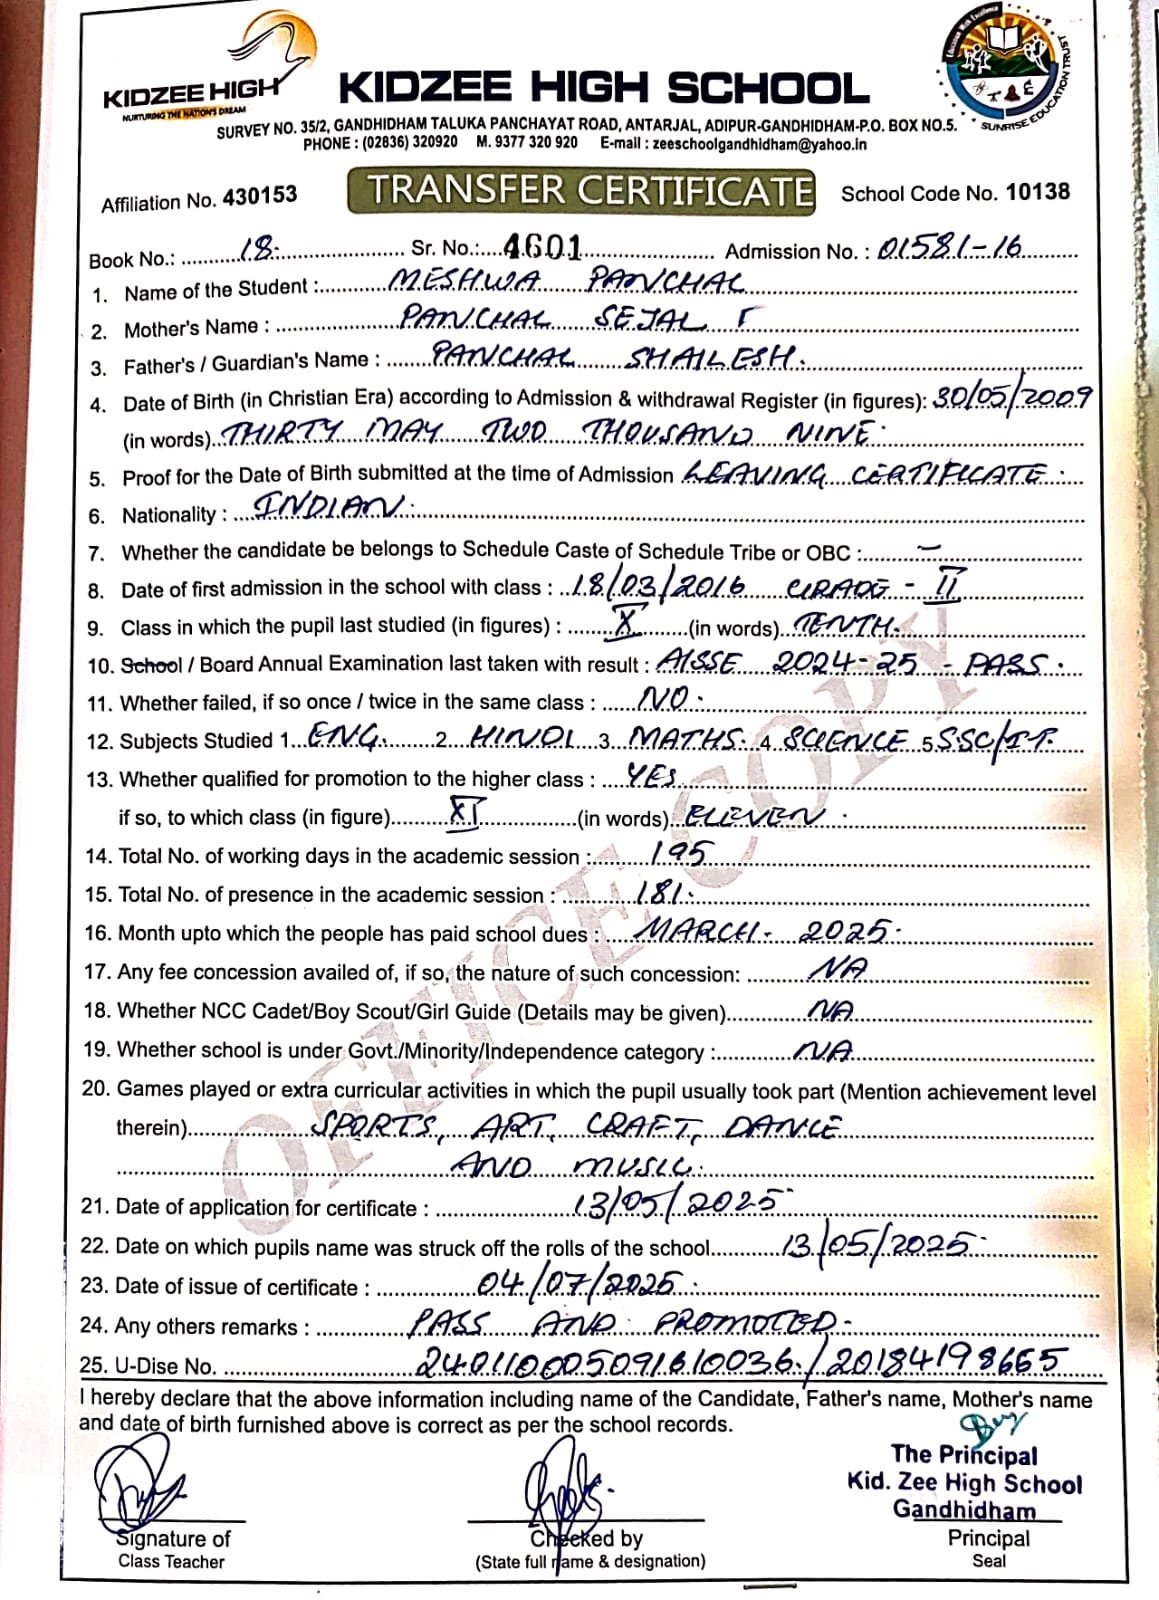 KIDZEE HIGH
NURTURING THE NATION'S DREAM
KIDZEE HIGH SCHOOL
SUNRISE EDUCATION TRUST
SURVEY NO. 35/2, GANDHIDHAM TALUKA PANCHAYAT ROAD, ANTARJAL, ADIPUR-GANDHIDHAM-P.O. BOX NO.5.
PHONE : (02836) 320920 M. 9377 320 920 E-mail : zeeschoolgandhidham@yahoo.in
Affiliation No. 430153 TRANSFER CERTIFICATE School Code No. 10138
Book No.: 18. Sr. No.: 4601 Admission No. : 01581-16
1. Name of the Student : MESHWA PANCHAL
2. Mother's Name : PANCHAL SEJAL
3. Father's / Guardian's Name : PANCHAL SHAILESH.
4. Date of Birth (in Christian Era) according to Admission & withdrawal Register (in figures): 30/05/2009
(in words) THIRTY MAY TWO THOUSAND NINE.
5. Proof for the Date of Birth submitted at the time of Admission LEAVING CERTIFICATE.
6. Nationality : INDIAN.
7. Whether the candidate be belongs to Schedule Caste of Schedule Tribe or OBC : –
8. Date of first admission in the school with class : 18/03/2016 GRADE - II
9. Class in which the pupil last studied (in figures) : X (in words) TENTH.
10. School / Board Annual Examination last taken with result : AISSE 2024-25 - PASS.
11. Whether failed, if so once / twice in the same class : NO.
12. Subjects Studied 1 ENG. 2 HINDI 3 MATHS. 4 SCIENCE 5 SSC/IT.
13. Whether qualified for promotion to the higher class : YES
if so, to which class (in figure) XI (in words) ELEVEN.
14. Total No. of working days in the academic session : 195
15. Total No. of presence in the academic session : 181.
16. Month upto which the people has paid school dues : MARCH - 2025.
17. Any fee concession availed of, if so, the nature of such concession: NA
18. Whether NCC Cadet/Boy Scout/Girl Guide (Details may be given) NA
19. Whether school is under Govt./Minority/Independence category : NA
20. Games played or extra curricular activities in which the pupil usually took part (Mention achievement level
therein) SPORTS, ART, CRAFT, DANCE
AND MUSIC.
21. Date of application for certificate : 13/05/2025
22. Date on which pupils name was struck off the rolls of the school 13/05/2025
23. Date of issue of certificate : 04/07/2025.
24. Any others remarks : PASS AND PROMOTED.
25. U-Dise No. 240110005091610036 / 20184198665
OFFICE COPY
I hereby declare that the above information including name of the Candidate, Father's name, Mother's name
and date of birth furnished above is correct as per the school records.
The Principal
Kid. Zee High School
Gandhidham
Signature of Checked by Principal
Class Teacher (State full name & designation) Seal